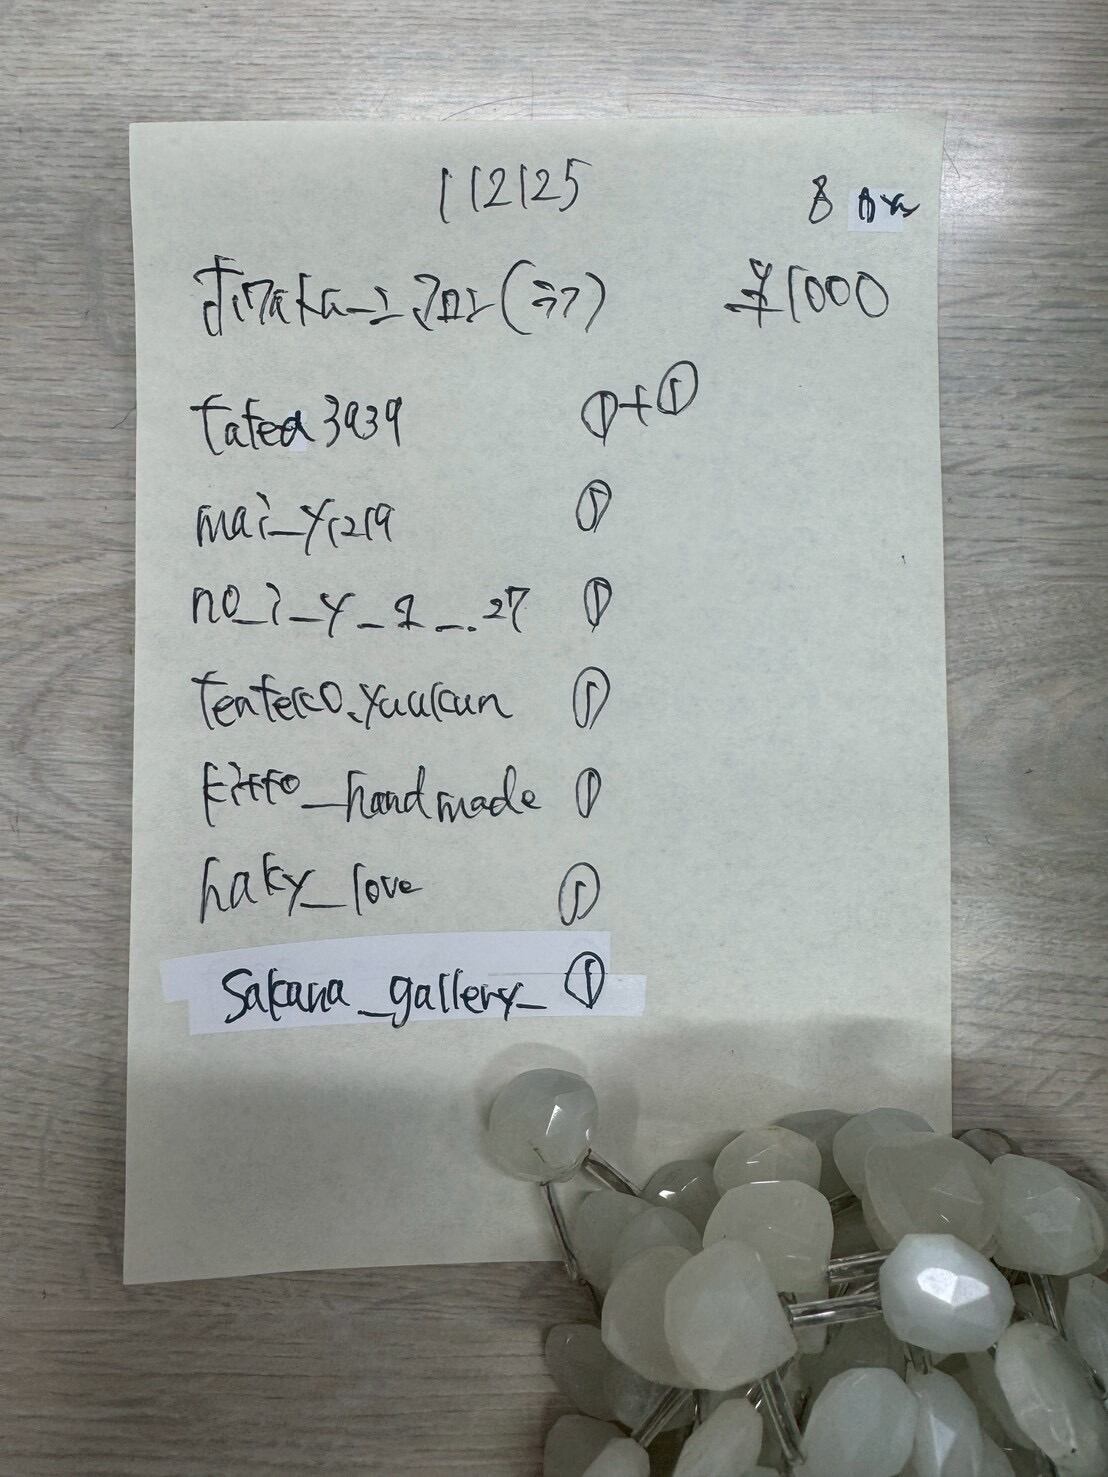 112125
8
¥1000
tatea3939 ①+①
mai_y1219 ①
no_i_y_1_.27 ①
tenteko.yuukun ①
kitto_handmade ①
haky_love ①
Sakana_gallery_ ①